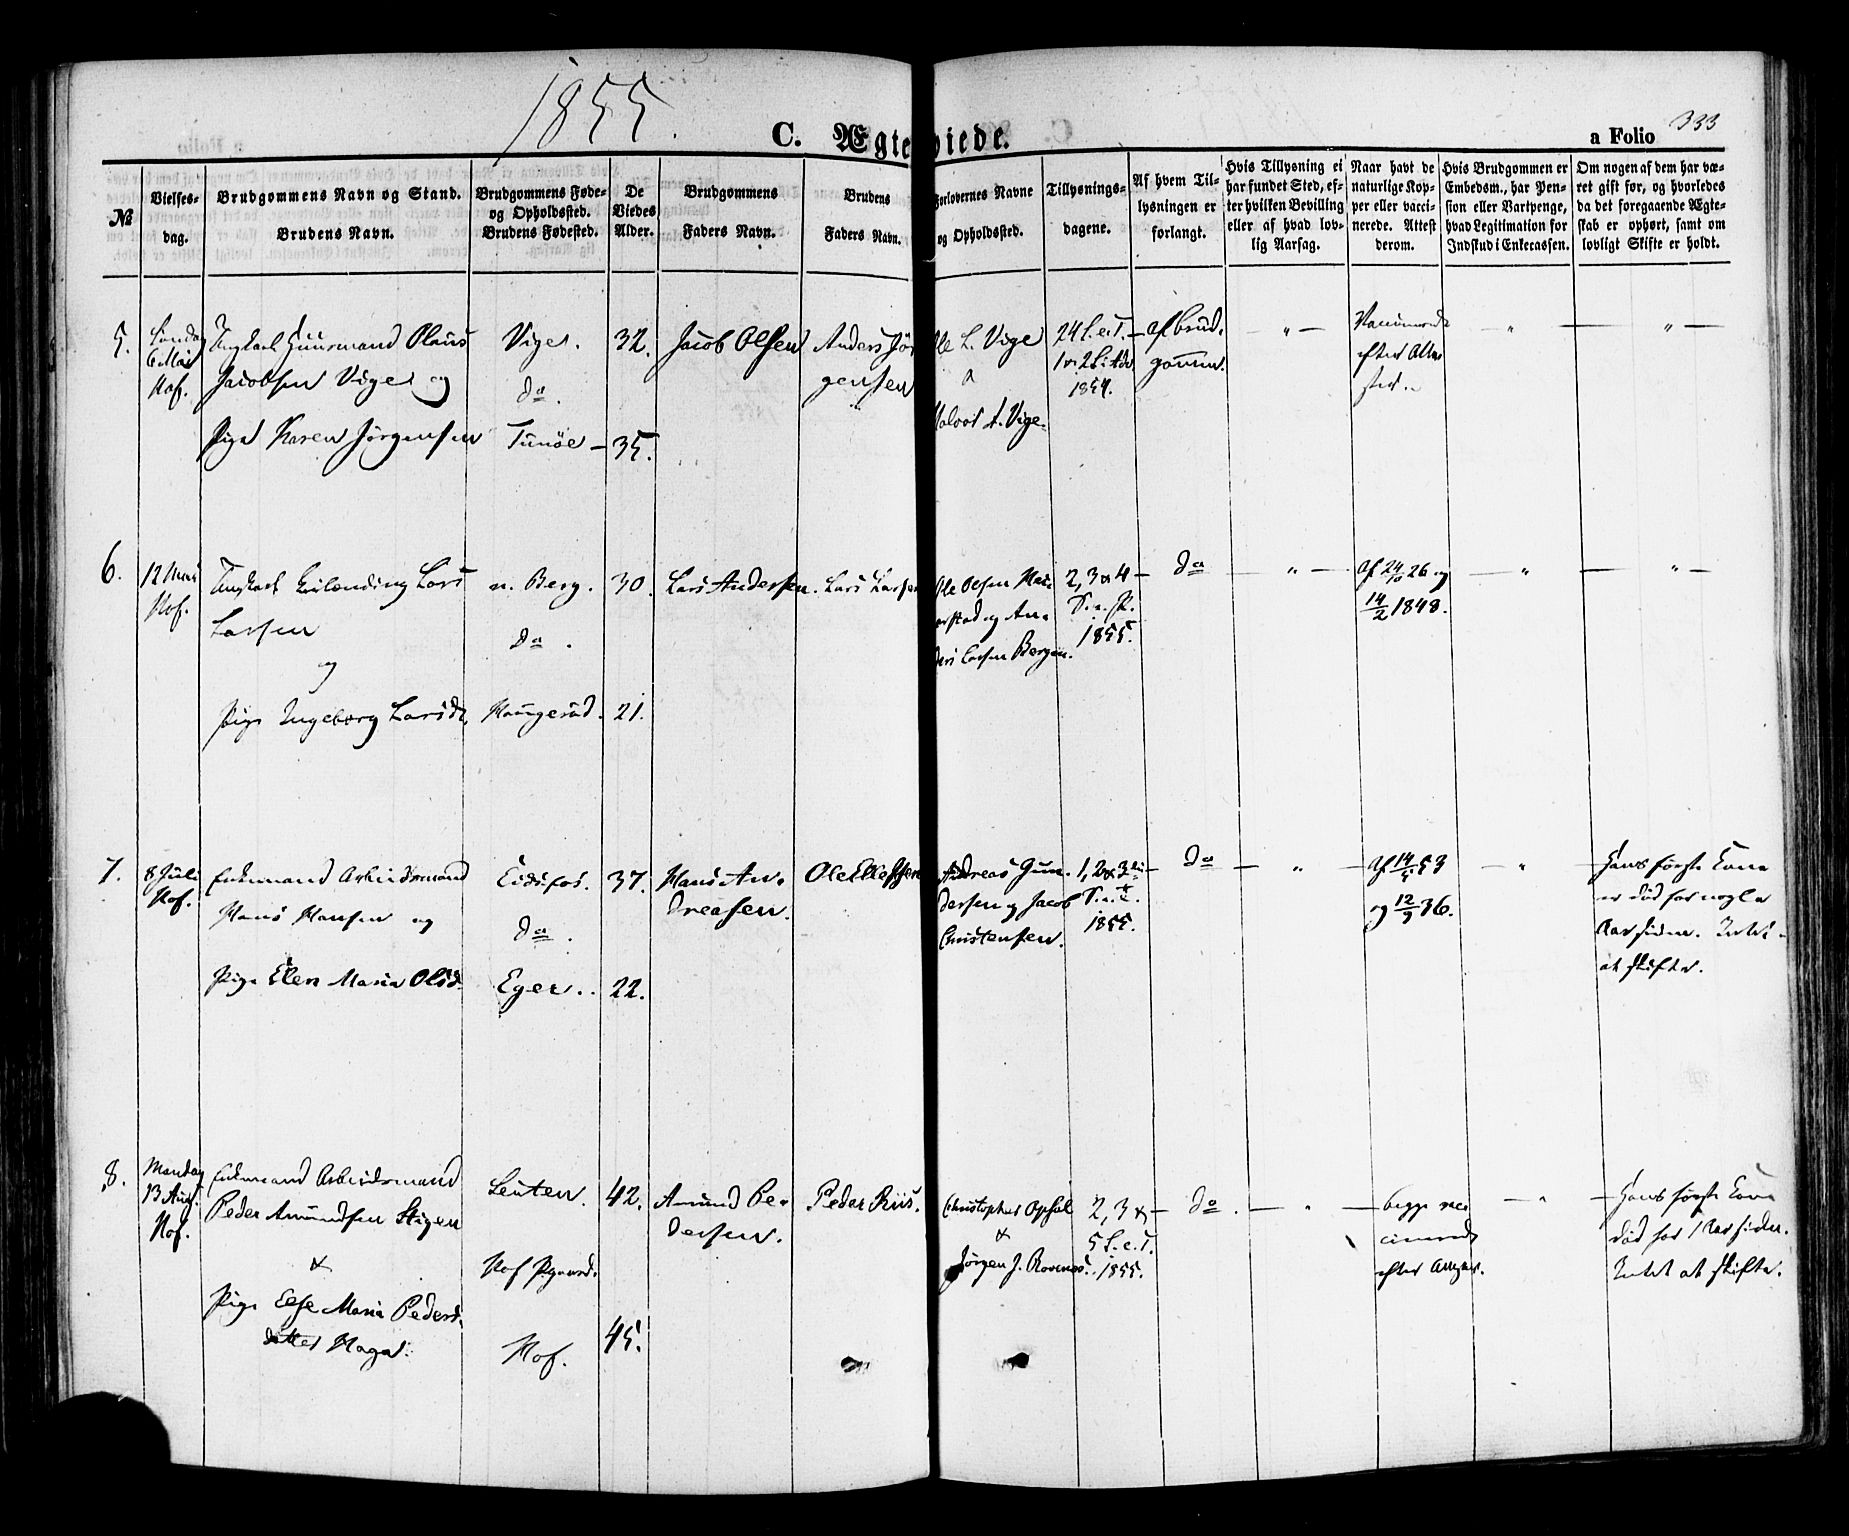 1855.
C. Ægteviede.
a Folio 333
№
Vielses-
dag.
Brudgommens Navn og Stand.
Brudens Navn.
Brudgommens Føde-
og Opholdssted.
Brudens Fødested.
De
Viedes
Alder.
Brudgommens
Faders Navn.
Brudens
Faders Navn.
Forlovernes Navne
og Opholdssted.
Tillysnings-
dagene.
Af hvem Til-
lysningen er
forlangt.
Hvis Tillysning ei
har fundet Sted, ef-
ter hvilken Bevilling
eller af hvad lov-
lig Aarsag.
Naar havt de
naturlige Kop-
per eller vacci-
nerede. Attest
derom.
Hvis Brudgommen er
Embedsm., har Pen-
sion eller Vartpenge,
hvad Legitimation for
Indskud i Enkecassen.
Om nogen af dem har væ-
ret gift før, og hvorledes
da det foregaaende Ægte-
skab er ophørt, samt om
lovligt Skifte er holdt.
5.
Søndag
6 Mai
Hof.
Ungkarl Huusmand Olaus
Jacobsen Vige og
Pige Karen Jørgensen
Vige.
do.
Tunöe
32.
35.
Jacob Olsen
Anders Jør
gensen
Ole L. Vige
Halvor A. Vige
24 S. e. T.
1854.
af Brud-
gommen.
"
Vaccinerede
efter Atte
ster.
"
"
6.
12
Hof.
Ungkarl Lars
Larsen
og
Pige Ingeborg Larsd.
n. Berg.
do.
Haugerud.
30.
21.
Lars Andersen.
Lars Larsen
Ole Olsen
og An-
ders Larsen Bergan.
2, 3 & 4
1855.
do
"
af 24/10 26 og
14/2 1848.
"
"
7.
8 Juli
Hof.
Enkemand Arbeidsmand
Hans Hansen og
Pige Elen Maria Olsd.
Eidsfos.
do.
Eger.
37.
22.
Hans An-
dreasen.
Ole Ellefsen
Andreas Gun-
dersen og Jacob
Christensen.
1, 2 & 3die
S. e. T.
1855.
do
"
af 14/5 53
og 12/9 36.
"
Hans første Kone
er död for nogle
Aar siden. Intet
at skifte.
8.
Mandag
13 Aug.
Hof.
Enkemand Arbeidsmand
Peder Amundsen Stigen
&
Pige Else Maria Peders
datter Haga.
Leuten.
Hof Pgaard.
Hof.
42.
45.
Amund Pe-
dersen.
Peder Riis.
Christopher Opsal
&
Jørgen J.
2, 3 &
5 S. e. T.
1855.
do.
"
begge vac
cinerede
efter
"
Hans første Kone
död for 1 Aar siden.
Intet at skifte.